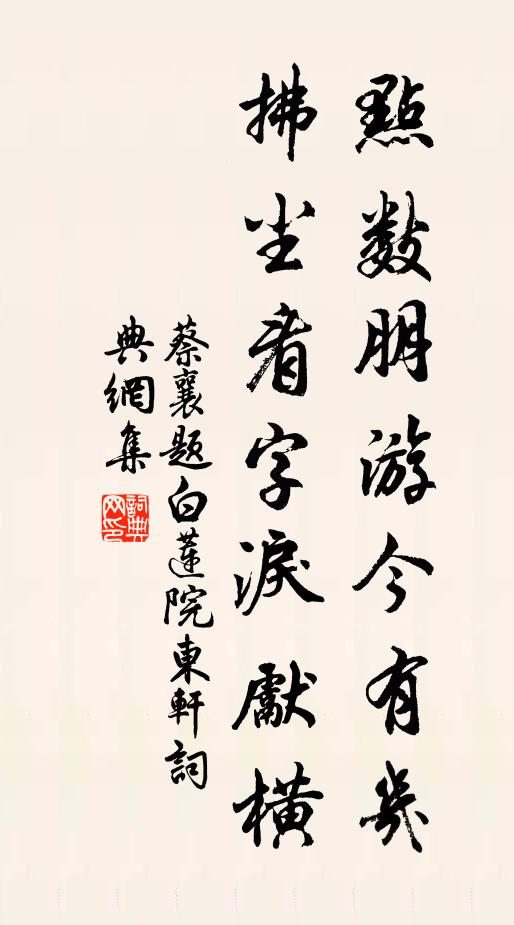 點數朋游今有幾
拂尘看字淚獻橫
蔡襄題白蓮院東軒詞
典網集
詞典
网印